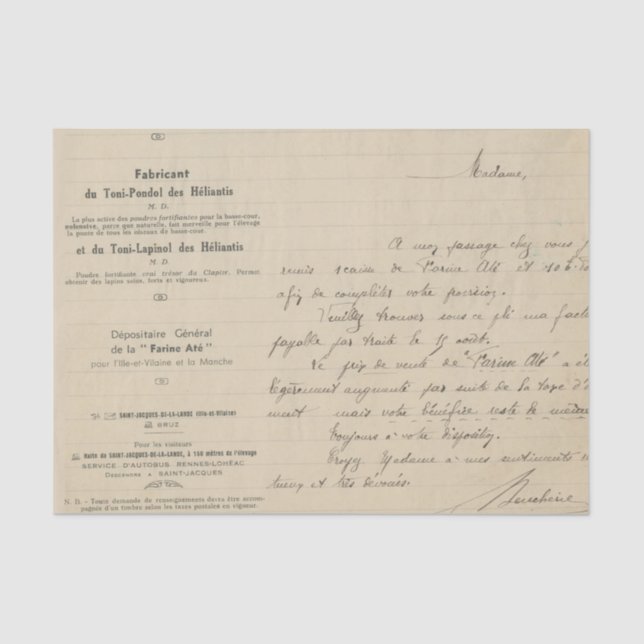 Fabricant
du Toni-Pondol des Héliantis
M. D.
La plus active des poudres fortifiantes pour la basse-cour,
inoffensive, parce que naturelle, fait merveille pour l'élevage
la ponte de tous les oiseaux de basse-cour.
et du Toni-Lapinol des Héliantis
M. D.
Poudre fortifiante, vrai trésor du Clapier. Permet
obtenir des lapins sains, forts et vigoureux.
Dépositaire Général
de la " Farine Até "
pour l'Ille-et-Vilaine et la Manche
SAINT-JACQUES-DE-LA-LANDE (Ille-et-Vilaine)
BRUZ
Pour les visiteurs
Halte de SAINT-JACQUES-DE-LA-LANDE, à 150 mètres de l'élevage
SERVICE D'AUTOBUS RENNES-LOHÉAC
Descendre a SAINT-JACQUES
N. B. - Toute demande de renseignements devra être accom-
pagnée d'un timbre selon les taxes postales en vigueur.
Madame,
A mon passage chez vous
remis 1 caisse de Farine Até et 10 b.
afin de compléter votre provision.
Veuillez trouver sous ce pli ma fact
payable par traite le 15 août.
Le prix de vente de "Farine Até" a é
légèrement augmenté par suite de la taxe d'
ment mais votre bénéfice reste de même
Toujours à votre disposition.
Croyez Madame à mes sentiments
tueux et très dévoués.